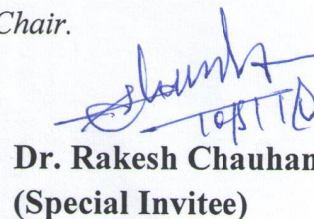 Chair.
Dr. Rakesh Chauhan
(Special Invitee)